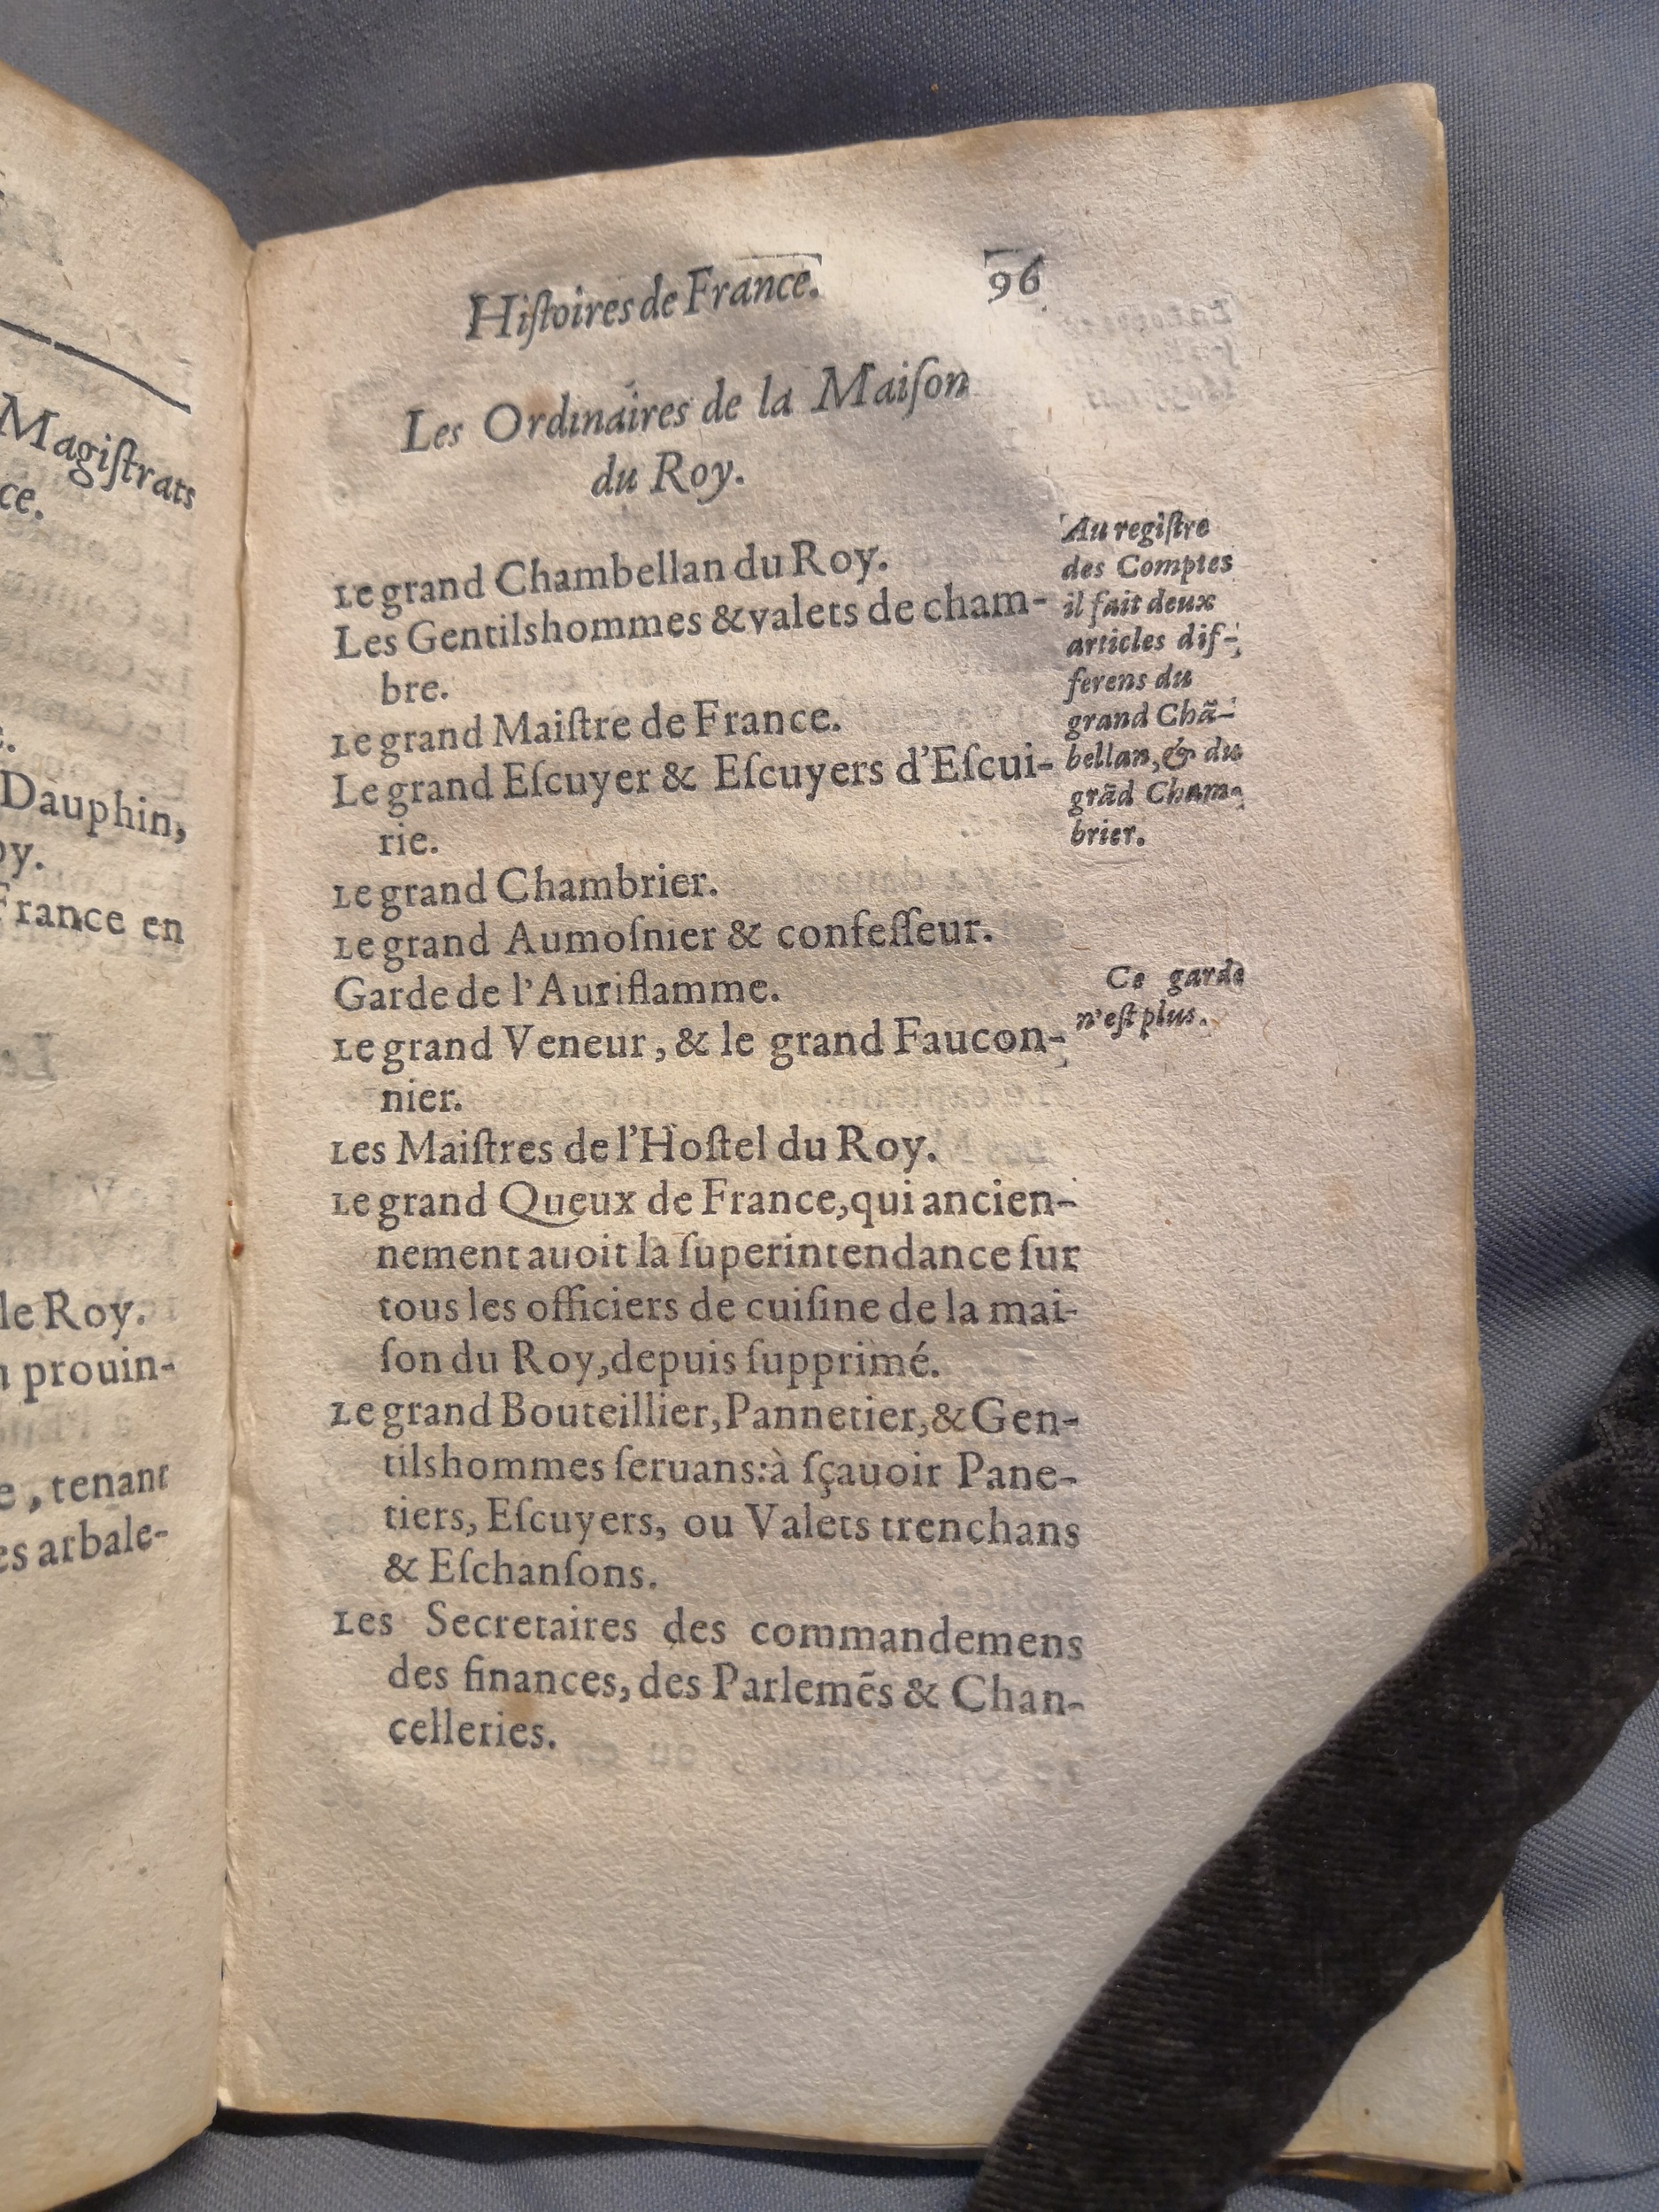 Magiſtrats
ce.
Dauphin,
oy.
France en
le Roy.
prouin-
e, tenant
es arbale-
Hiſtoires de France. 96
Les Ordinaires de la Maiſon
du Roy.
Le grand Chambellan du Roy.
Les Gentilshommes & valets de cham-
bre.
Le grand Maiſtre de France.
Le grand Eſcuyer & Eſcuyers d'Eſcui-
rie.
Le grand Chambrier.
Le grand Aumoſnier & confeſſeur.
Garde de l'Auriflamme.
Le grand Veneur, & le grand Faucon-
nier.
Les Maiſtres de l'Hoſtel du Roy.
Le grand Queux de France, qui ancien-
nement auoit la ſuperintendance ſur
tous les officiers de cuiſine de la mai-
ſon du Roy, depuis ſupprimé.
Le grand Bouteillier, Pannetier, & Gen-
tilshommes ſeruans: à ſçauoir Pane-
tiers, Eſcuyers, ou Valets trenchans
& Eſchanſons.
Les Secretaires des commandemens
des finances, des Parlemẽs & Chan-
celleries.
Au regiſtre
des Comptes
il fait deux
articles dif-
ferens du
grand Chã-
bellan, & du
grãd Cham-
brier.
Ce garde
n'eſt plus.